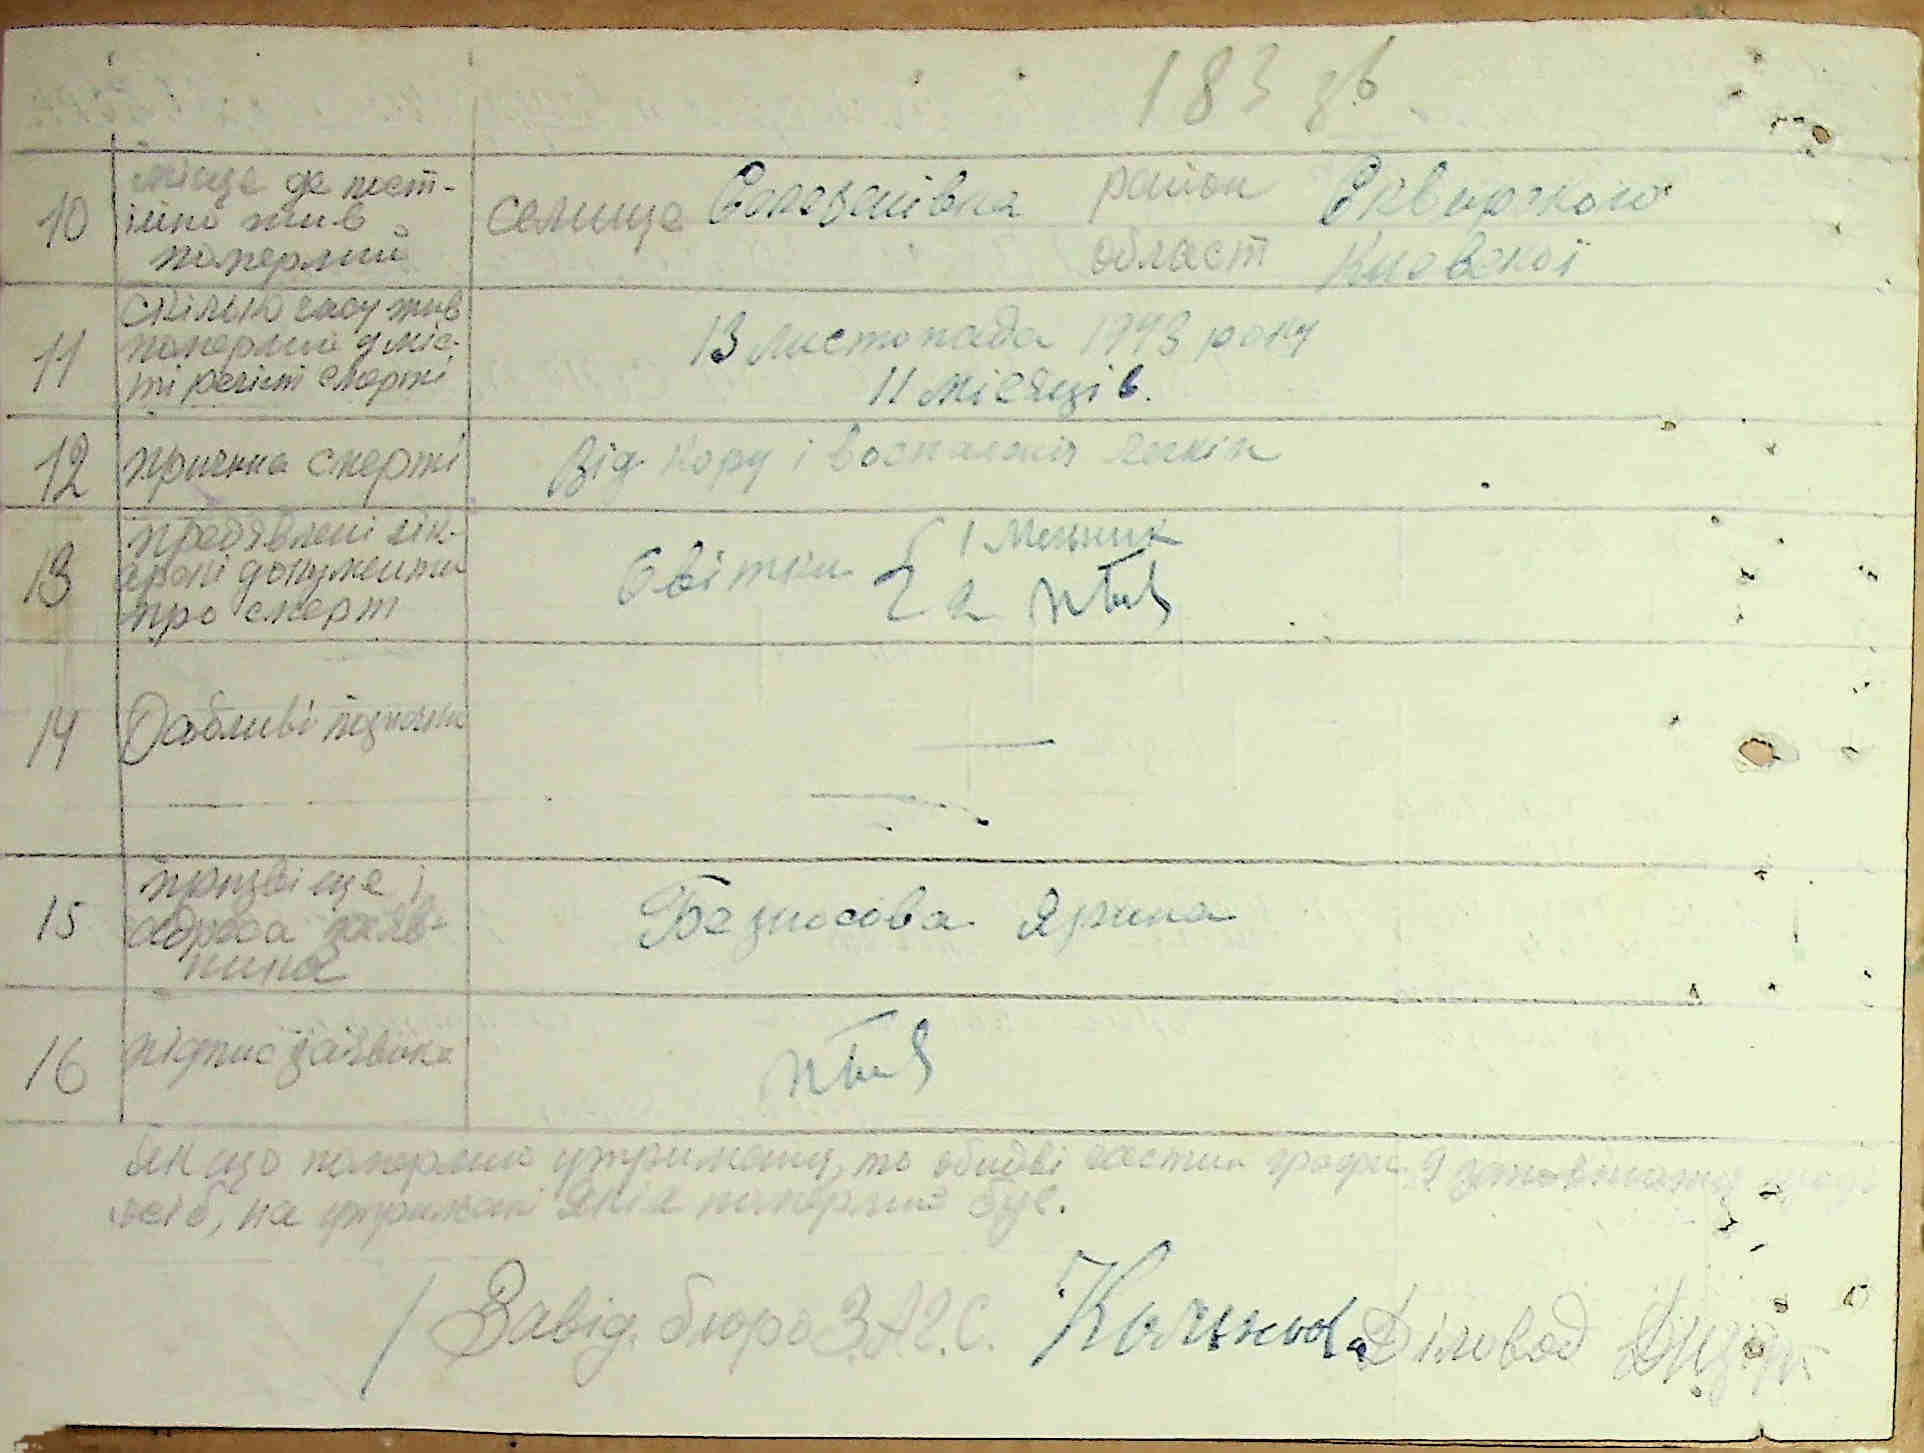 183 зв
10 місце де пост-
ійно жив
померлий
селище район Сквирского
област Киевскої
11 скілько часу жив
померлий у міс-
ті регіст смерті
13 листопада 1943 року
11 місяців.
12 причина смерті
Від кору і воспаления легкіх
13 предявлені лік-
арскі документи
про смерт
Свідки 1 Мельник
2
14 Особливі
15 прізвіще і
адреса заяв-
ника
Безносова Ярина
16 підпис заявника
Якщо померлий утриманц, то обидві частин графи 9
осіб, на утримані якіх померлий був.
Завід. бюро З.А.Г.С. Діловод